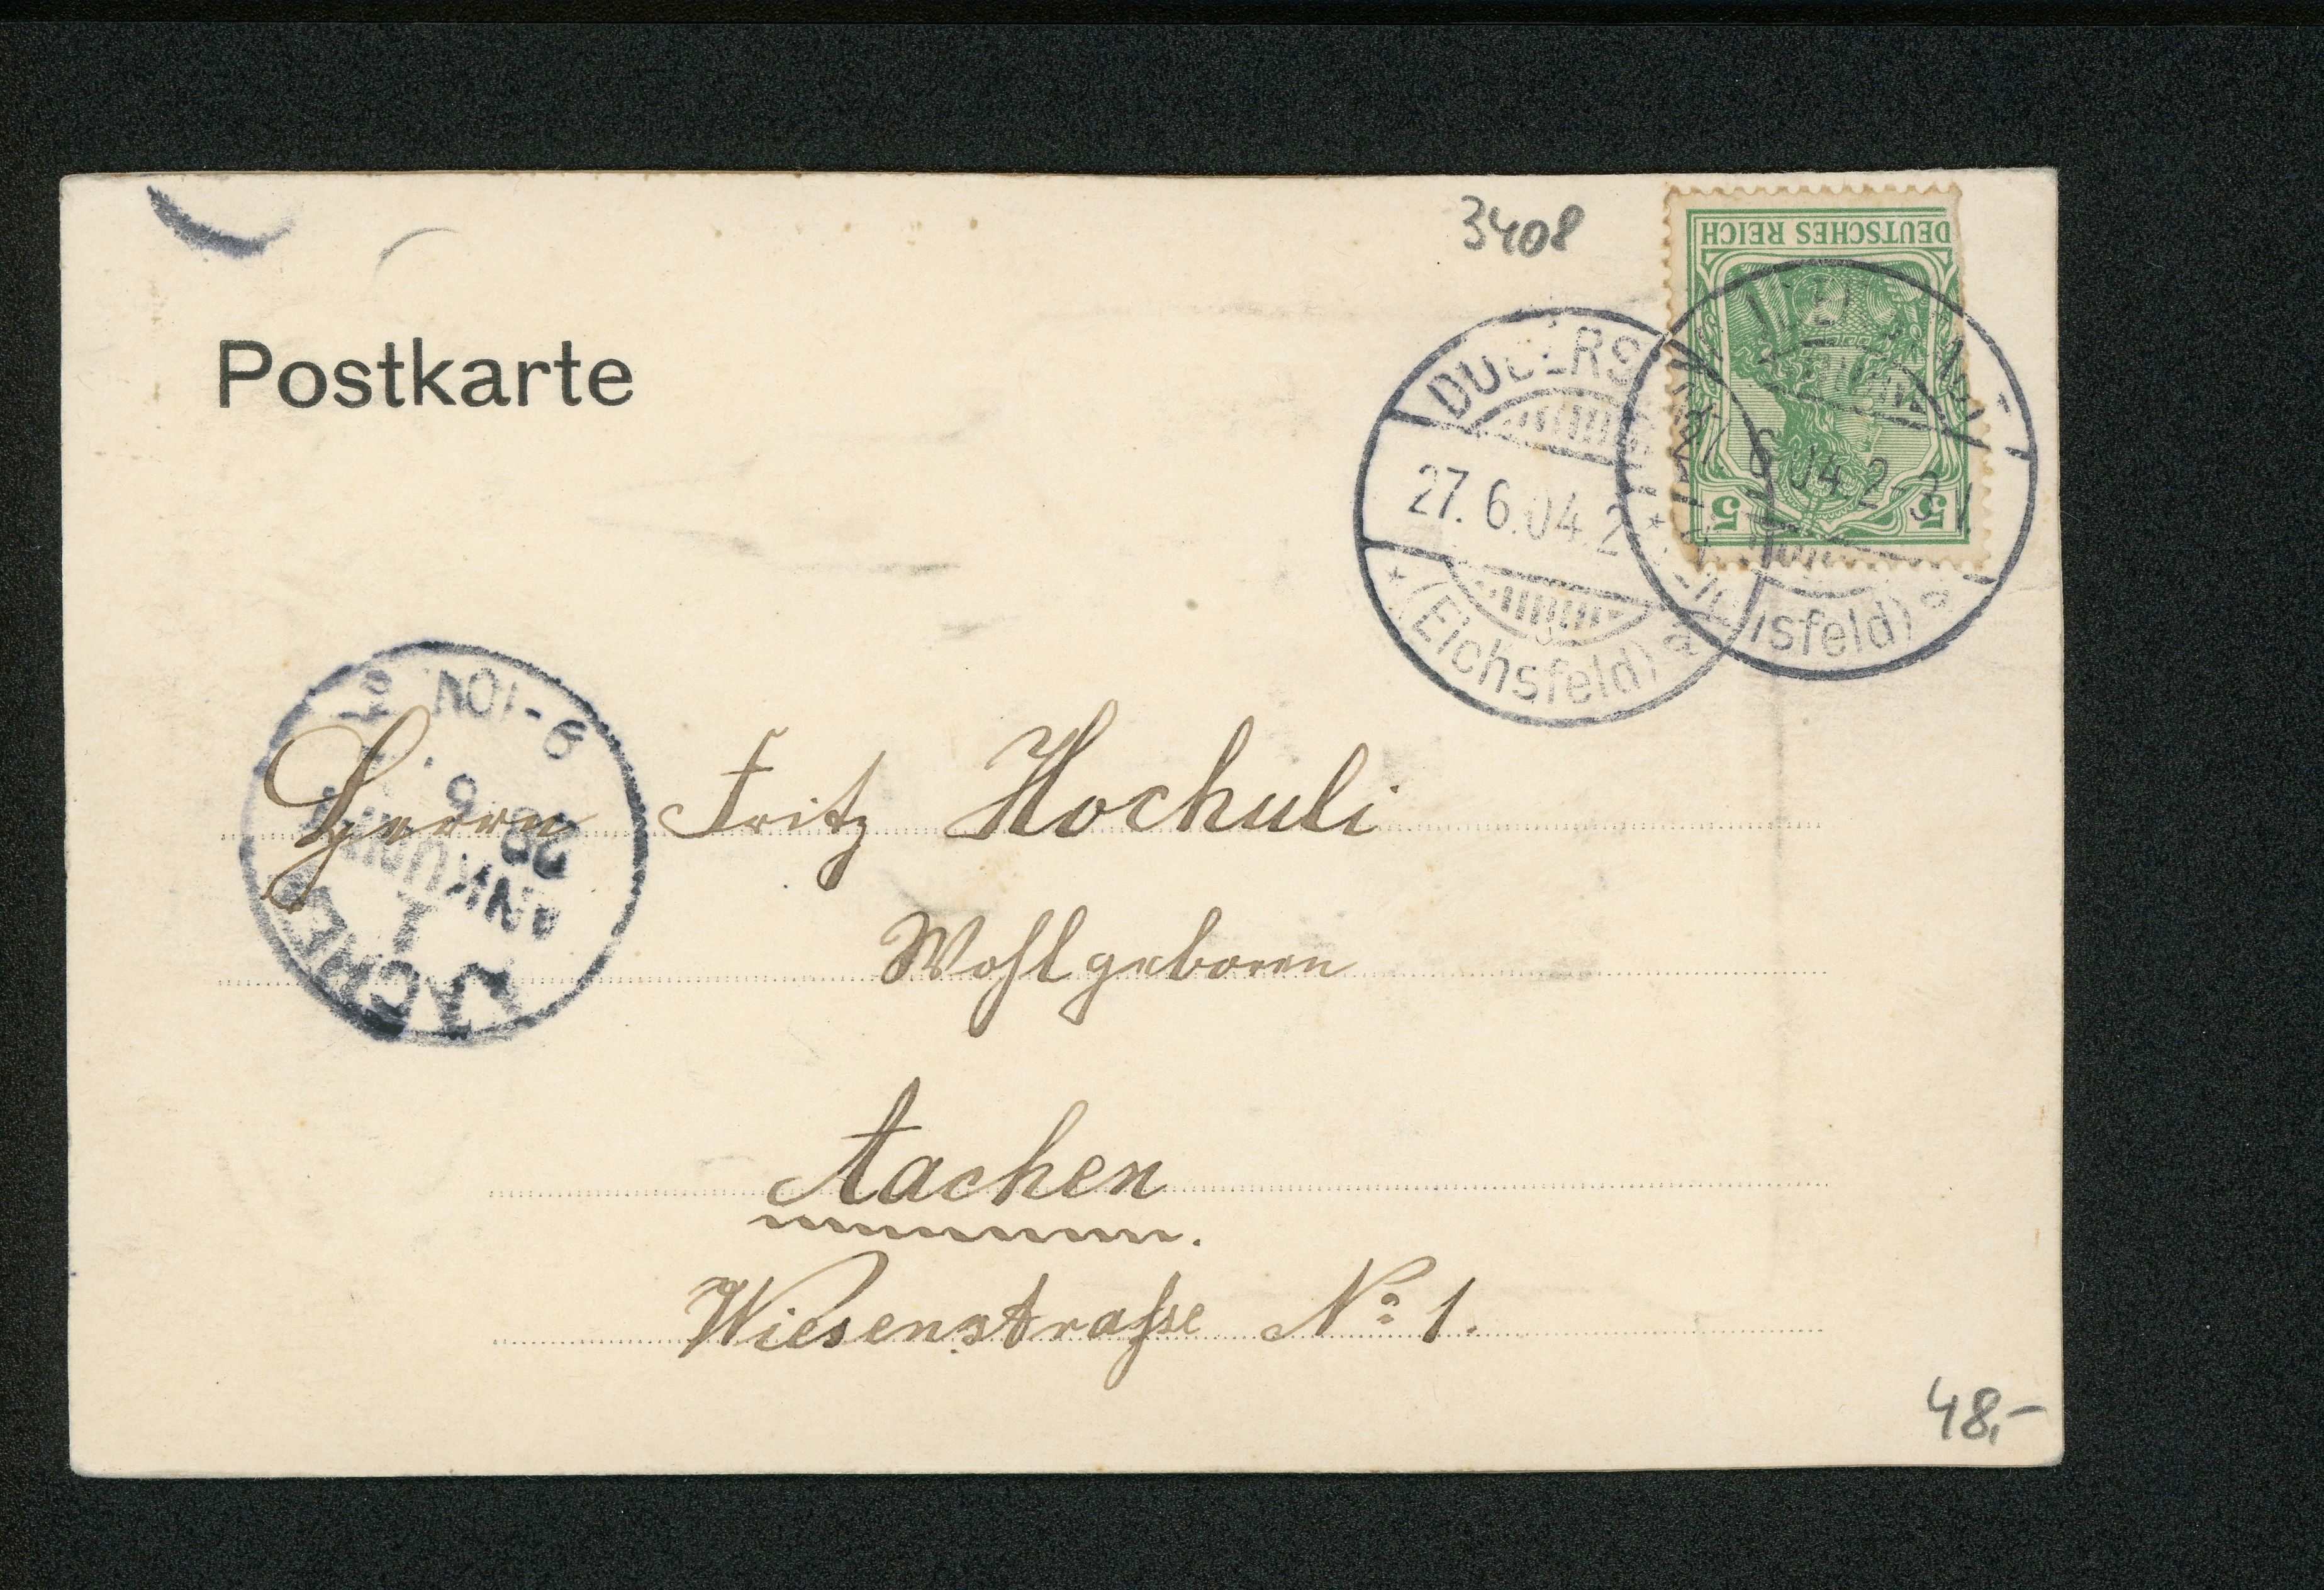 3408
DEUTSCHES REICH
5 5
Postkarte
DUDERS
27.6.04.2
(Eichsfeld) a
6.04.2-3
sfeld) a
9-10V.
28 6
ANKUNFT
1
AACHEN
Herrn Fritz Hochuli
Wohlgeboren
Aachen
Wiesenstraße No 1.
48,-